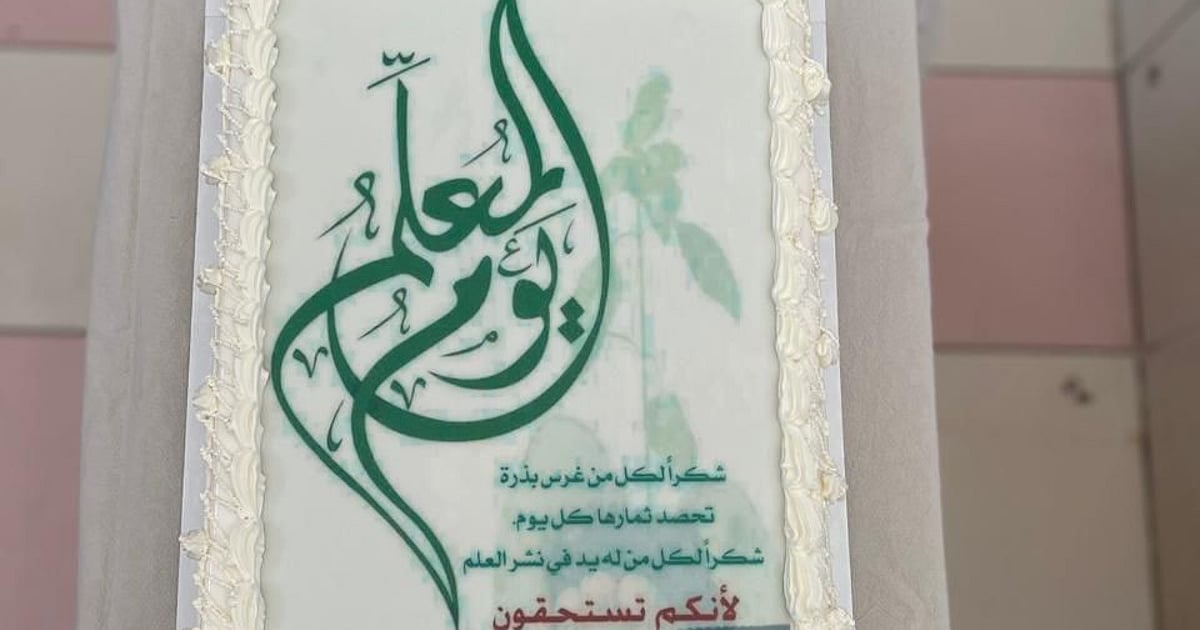 يوم المعلم
شكراً لكل من غرس بذرة
تحصد ثمارها كل يوم.
شكراً لكل من له يد في نشر العلم
لأنكم تستحقون